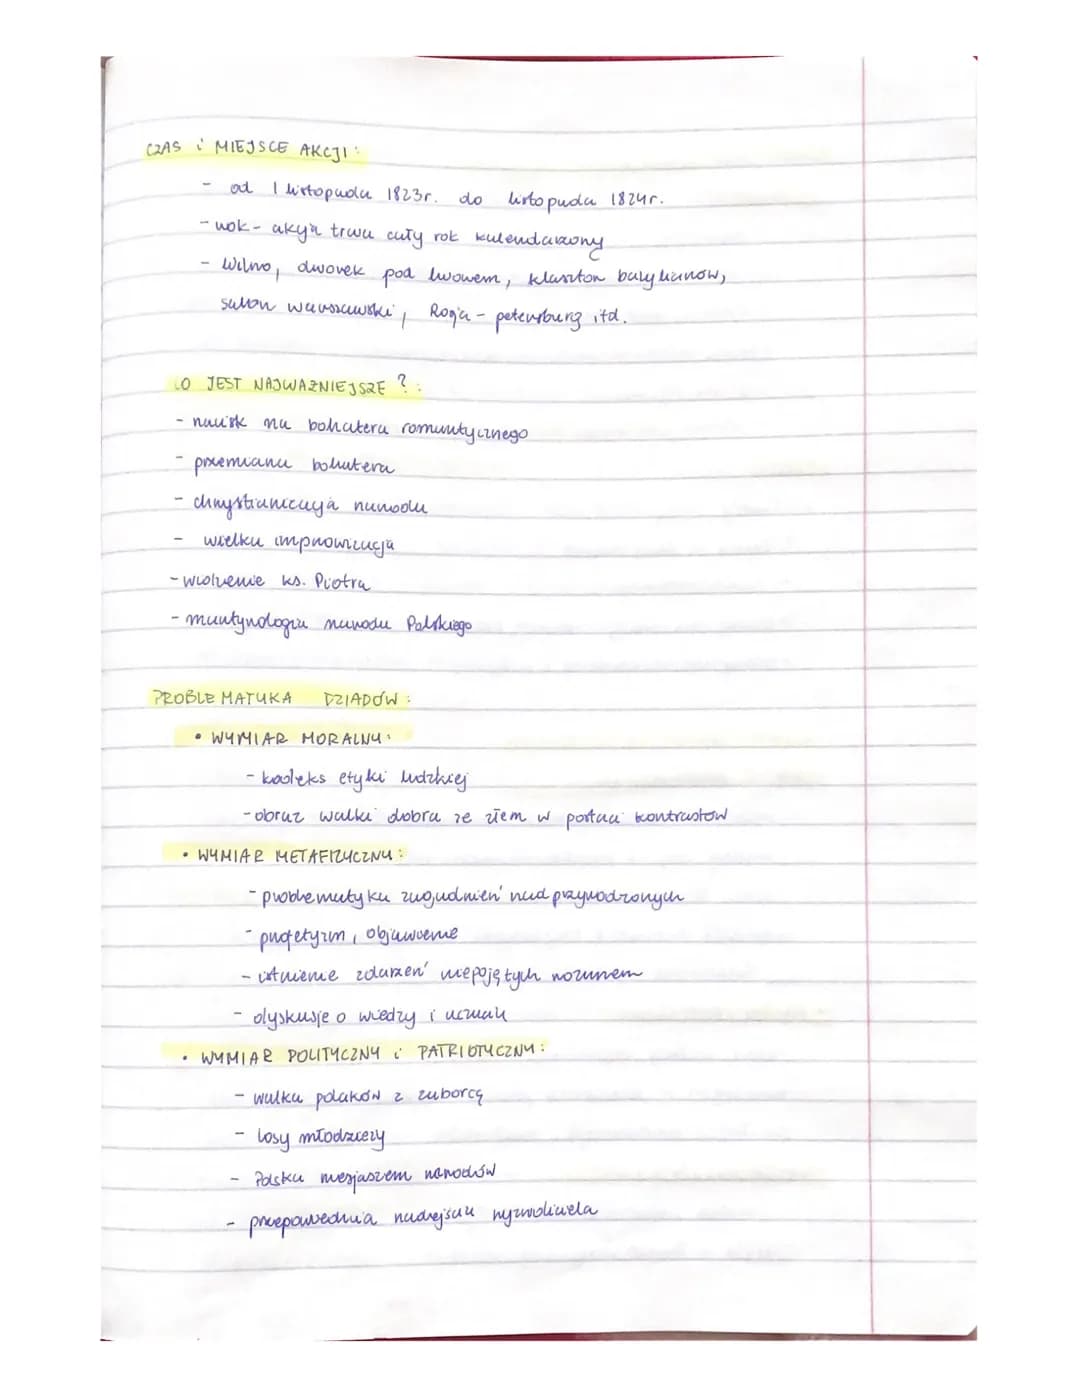 CZAS i MIEJSCE AKCJI:
- od 1 listopada 1823r. do listopada 1824r.
- rok - akcja trwa cały rok kalendarzowy
- Wilno, dworek pod lwowem, klasztor bazylianów,
salon warszawski, Rosja - petersburg itd.
CO JEST NAJWAŻNIEJSZE ?:
- nacisk na bohatera romantycznego
- przemiana bohatera
- chrystianizacja narodu
- wielka improwizacja
- widzenie ks. Piotra
- martyrologia narodu Polskiego
PROBLEMATYKA DZIADÓW:
• WYMIAR MORALNY:
- kodeks etyki ludzkiej
- obraz walki dobra ze złem w postaci kontrastów
• WYMIAR METAFIZYCZNY:
- problematyka zagadnień nad przyrodzonych
- profetyzm, objawienie
- istnienie zdarzeń niepojętych rozumem
- dyskusje o wiedzy i uczuciu
• WYMIAR POLITYCZNY i PATRIOTYCZNY:
- walka polaków z zaborcą
- losy młodzieży
- Polska mesjaszem narodów
- przepowiednia nadejścia wyzwoliciela